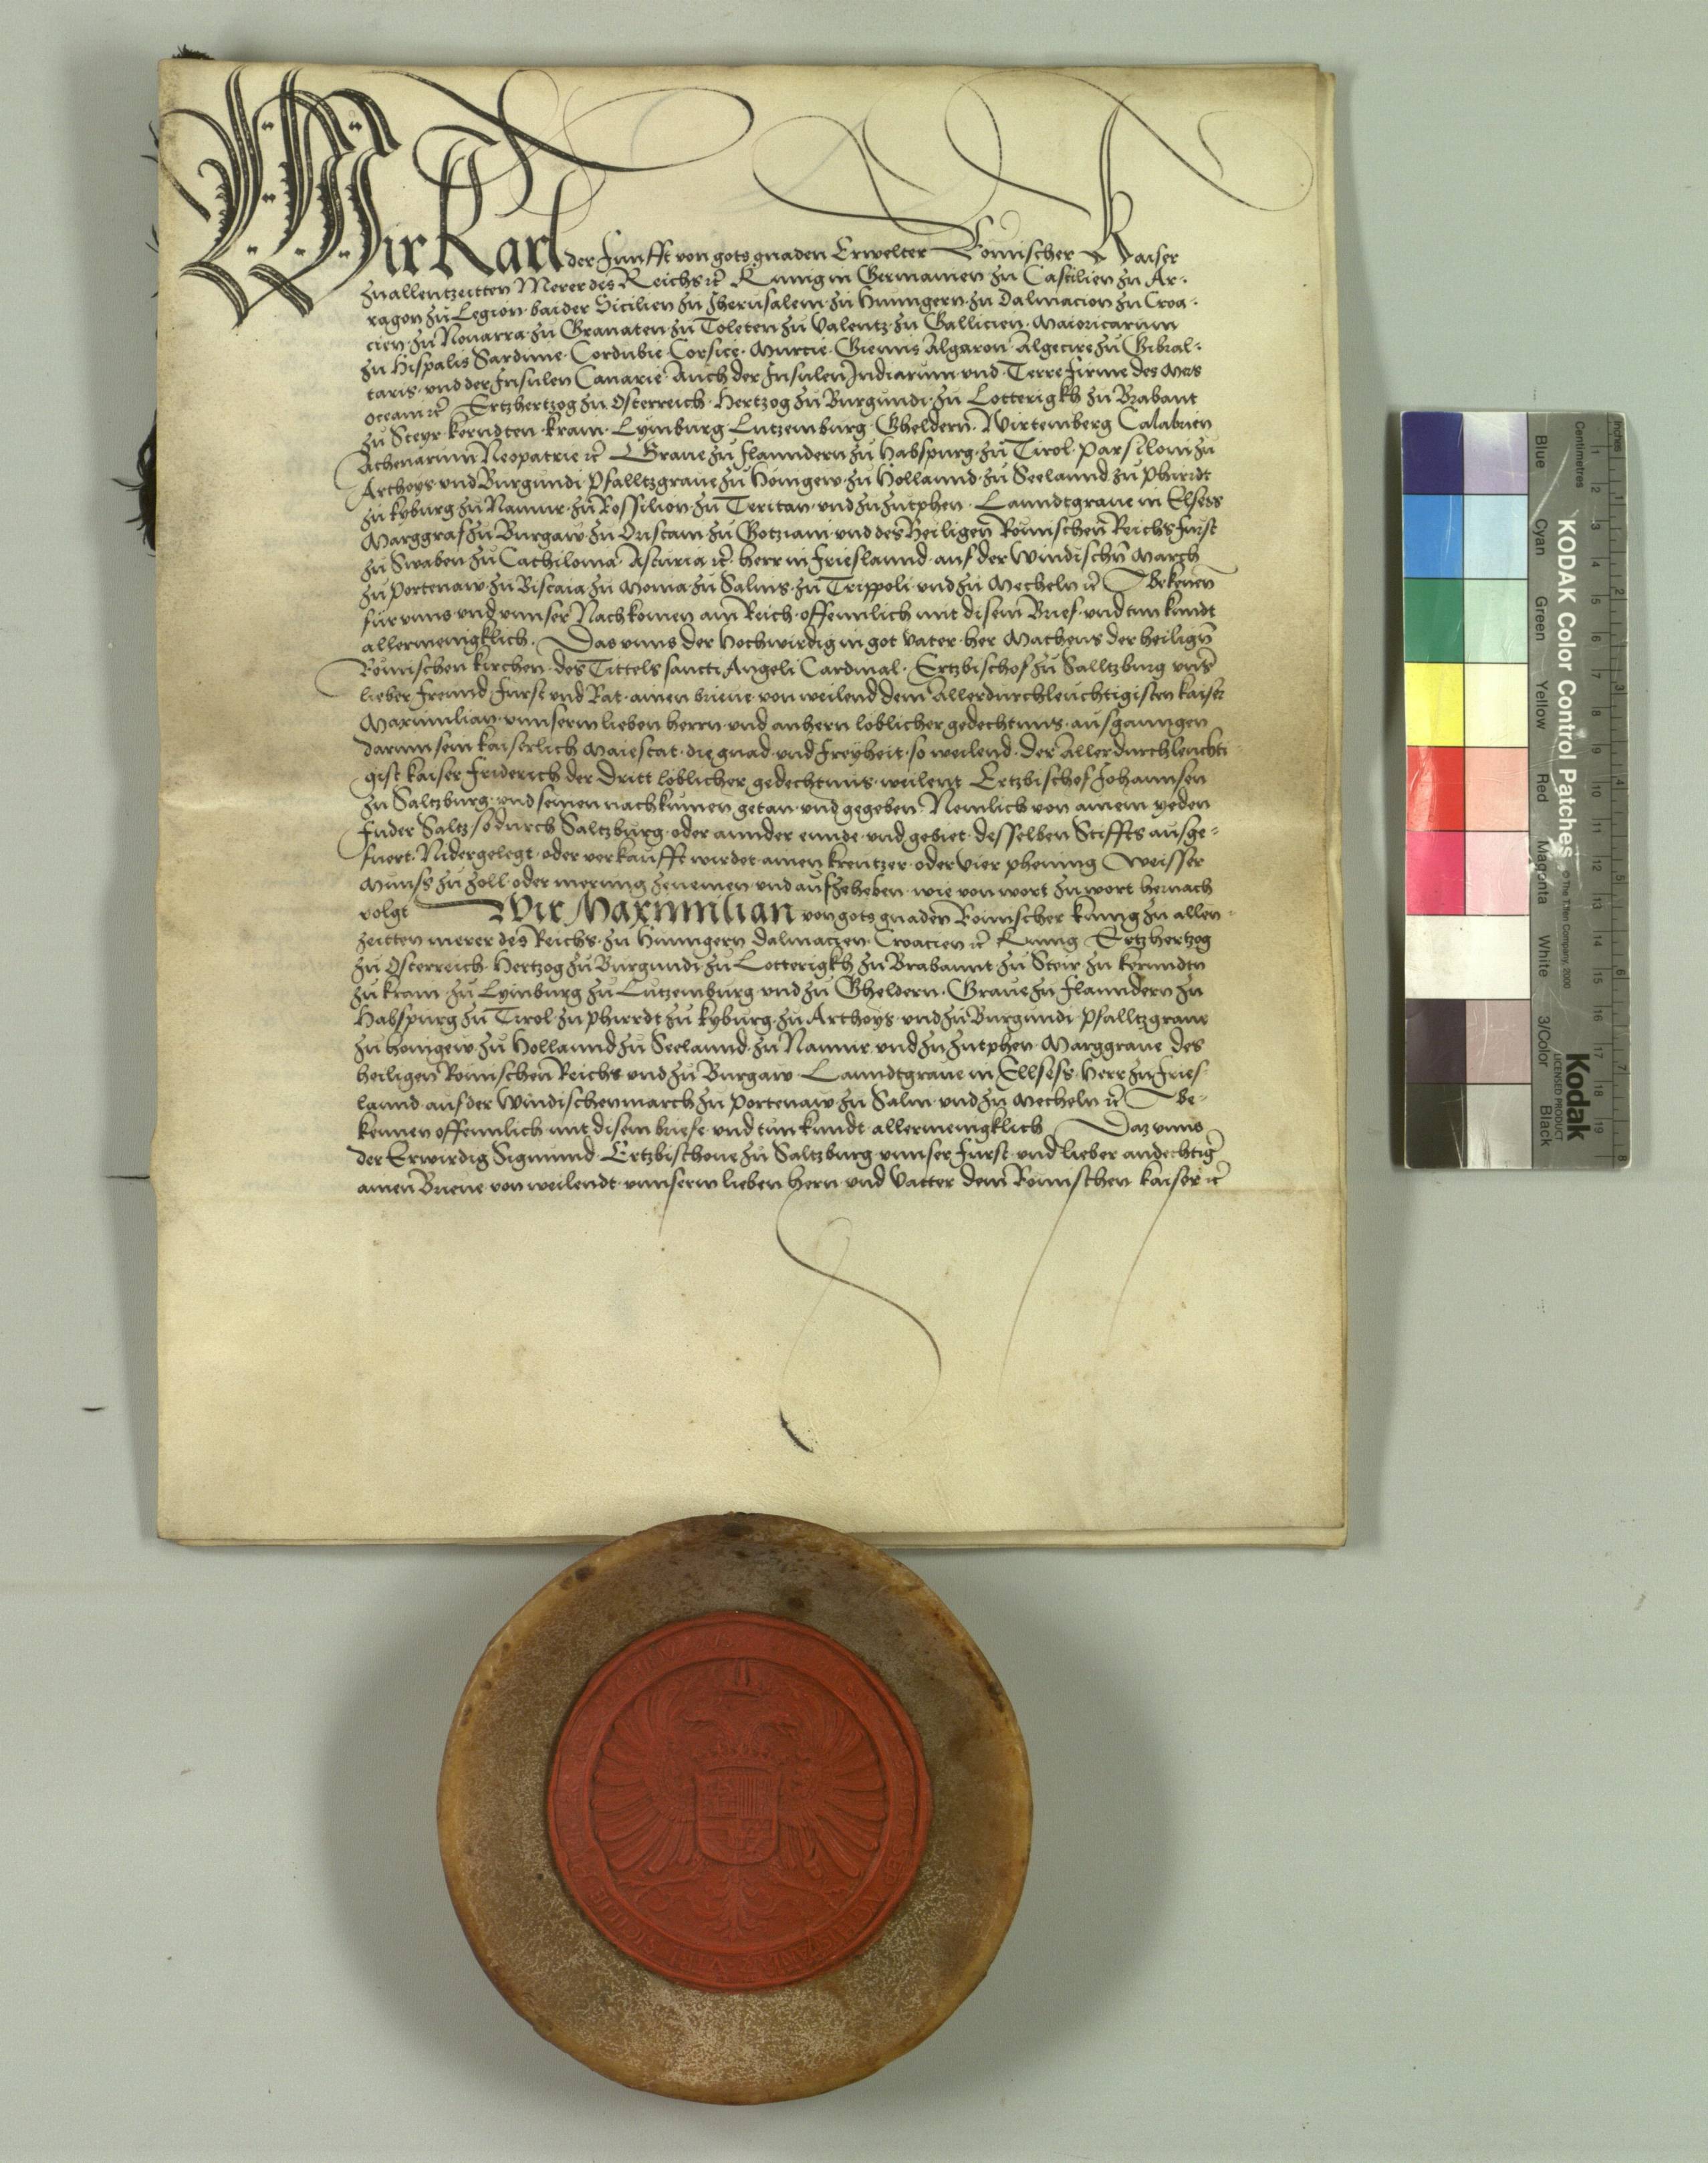 Wir Karl der Funfft von gots gnaden Erwelter Romischer Kaiser
zu allentzeitten Merer des Reichs rc Kunig in Germanien zu Castilien zu Ar-
ragon zu Legion baider Sicilien zu Jherusalem zu Hunngern zu Dalmacion zu Croa-
cien zu Nouarra zu Granaten zu Toleten zu Valentz zu Gallicien Maioricarum
zu Hispalis Sardinie Cordubie Corsice Murcie Giennis Algaron Algecire zu Gibral-
taris vnd der Insulen Canarie Auch der Insulen Indiarum vnd Terre firme des Mers
oceani rc Ertzhertzog zu Osterreich Hertzog zu Burgundi zu Lotterigkh zu Brabant
zu Steyr kernndten krain Lymburg Lutzemburg Gheldern Wirtemberg Calabrien
Athenarum Neopatrie rc Graue zu flanndern zu Habspurg zu Tirol Parsiloni zu
Arthoys vnd Burgundi Pfalltzgraue zu Hönigew zu Hollannd zu Seelannd zu Phirrdt
zu kyburg zu Namur zu Rossilion zu Teritan vnd zu zutphen Lanndtgraue in Elsess
Marggraf zu Burgaw zu Oristani zu Gotziani vnd des Heiligen Römischen Reichs furst
zu Swaben zu Cathilonia Asturia rc herr in frieslannd auf der Windischn March
zu Portenaw zu Biscaia zu Monia zu Salins zu Trippoli vnd zu Mecheln rc Bekenen
für vnns vnd vnnser Nachkomen am Reich offennlich mit disem Brief vnd tun kundt
allermenigklich Das vnns der Hochwirdig in got Vater her Matheus der heilign
Römischen kirchen des Tittels sancti Angeli Cardinal Ertzbischof zu Salltzburg vns
lieber freund fürst vnd Rat ainen brieue von weilend dem Allerdurchleuchtigisten kaiser
Maximilian vnnserm lieben herrn vnd anhern loblicher gedechtnus ausganngen
darinn sein kaiserlich Maiestat die gnad vnd freyheit so weilend der Allerdurchleuchti
gist kaiser friderich der Dritt loblicher gedechtnus weilent Ertzbischof Johannsen
zu Saltzburg vnd seinen nachkumen getan vnd gegeben Nemlich von ainem yeden
fuder Saltz so durch Saltzburg oder annder ennde vnd gebiet desselben Stiffts ausge-
fuert Nidergelegt oder verkaufft wirdet ainen kreutzer oder vier phening Weisser
Munss zu zoll oder merung zenemen vnd aufzeheben wie von wort zu wort hernach
volgt Wir Maximilian von gots gnaden Römischer kunig zu allen
zeitten merer des Reichs zu Hunngern Dalmatzen Croacien rc Kunig Ertzhertzog
zu Osterreich Hertzog zu Burgundi zu Lotterigkh zu Brabannt zu Steir zu kernndtn
zu krain zu Lymburg zu Lutzemburg vnd zu Gheldern Graue zu flanndern zu
Habspurg zu Tirol zu phirrdt zu kyburg zu Arthoys vnd zu Burgundi Pfalltzgraue
zu honigew zu Hollannd zu Seelannd zu Namur vnd zu zutphen Marggraue des
heiligen Römischen Reichs vnd zu Burgaw Lanndtgraue in Ellsess Herr zu fries-
lannd auf der Windischenmarch zu Portenaw zu Salin vnd zu Mecheln rc Be-
kennen offennlich mit disem briefe vnd tun kundt allermenigklich Daz vnns
der Erwirdig Sigmund Ertzbischoue zu Saltzburg vnnser furst vnd lieber andechtig
ainen Brieue von weilendt vnnserm lieben Hern vnd Vatter dem Römischen kaiser rc
KODAK Color Control Patches
© The Tiffen Company, 2000
Kodak
LICENSED PRODUCT
Inches
Centimetres
Blue
Cyan
Green
Yellow
Red
Magenta
White
3/Color
Black